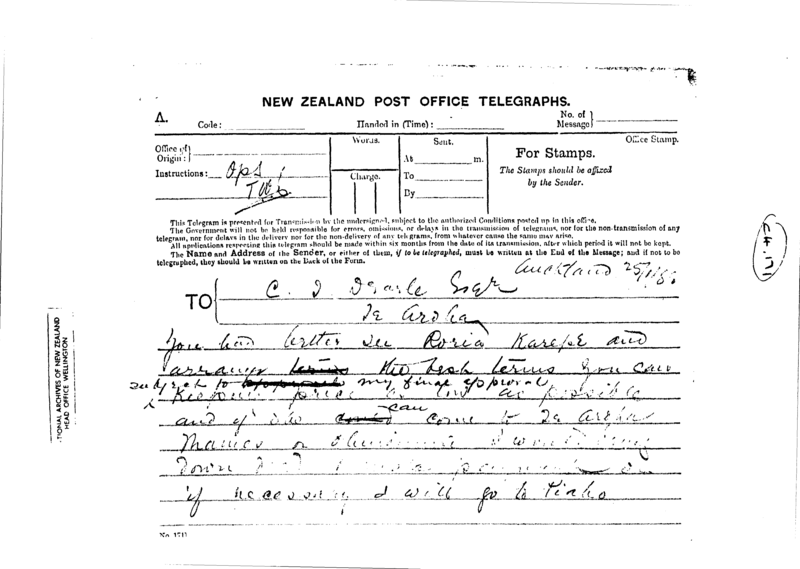 NEW ZEALAND POST OFFICE TELEGRAPHS.
Δ.
Code:
Handed in (Time):
No. of Message
Office of Origin:
Instructions: Ops ;
Words.
Charge.
Sent.
At m.
To
By
For Stamps.
The Stamps should be affixed
by the Sender.
Office Stamp.
This Telegram is presented for Transmission by the undersigned, subject to the authorized Conditions posted up in this office.
The Government will not be held responsible for errors, omissions, or delays in the transmission of telegrams, nor for the non-transmission of any
telegram, nor for delays in the delivery nor for the non-delivery of any telegrams, from whatever cause the same may arise.
All applications respecting this telegram should be made within six months from the date of its transmission, after which period it will not be kept.
The Name and Address of the Sender, or either of them, if to be telegraphed, must be written at the End of the Message; and if not to be
telegraphed, they should be written on the Back of the Form.
Auckland
TO
Esqr
Te Aroha
You had better see Karepe and
arrange terms the best terms you can
subject to my final approval
Keeping price as low as possible
and if can come to Te Aroha
Thames or I would
down
if necessary I will go to
No. 1711
NATIONAL ARCHIVES OF NEW ZEALAND
HEAD OFFICE WELLINGTON